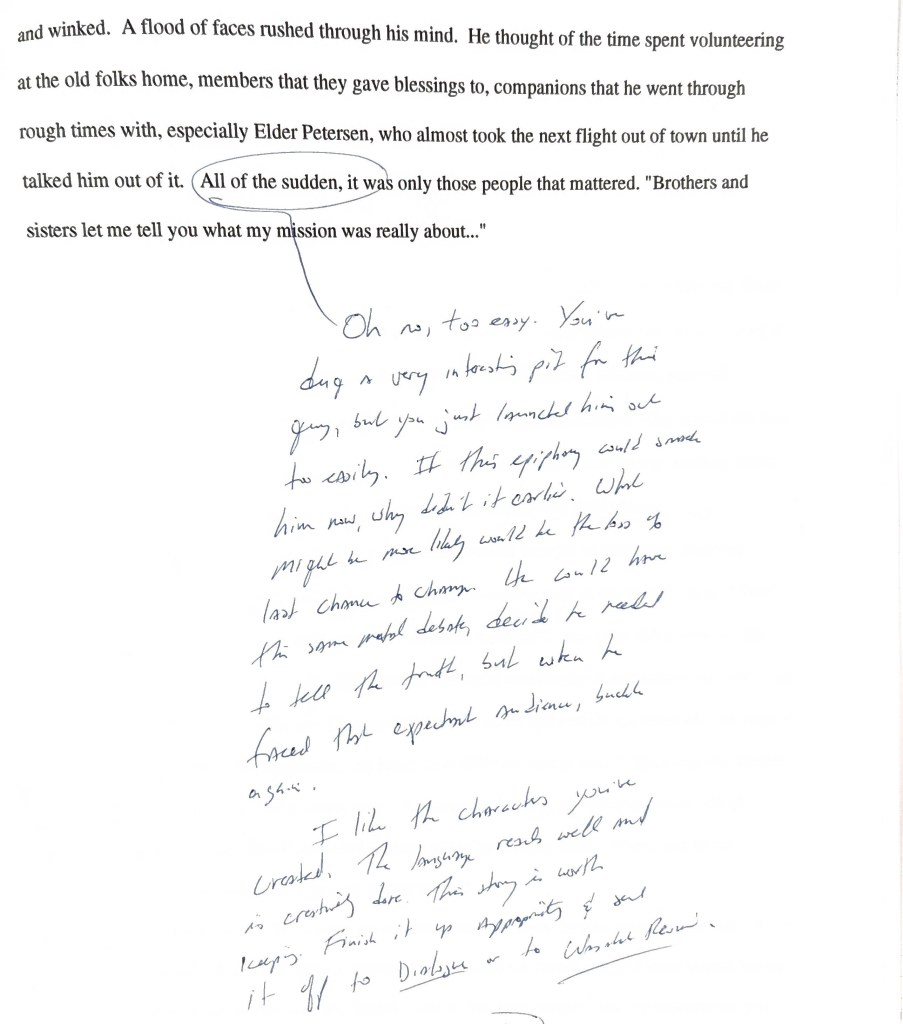 and winked.  A flood of faces rushed through his mind.  He thought of the time spent volunteering
at the old folks home, members that they gave blessings to, companions that he went through
rough times with, especially Elder Petersen, who almost took the next flight out of town until he
talked him out of it.  All of the sudden, it was only those people that mattered. "Brothers and
sisters let me tell you what my mission was really about..."
Oh no, too easy. You've
dug a very interesting pit for this
guy, but you just launched him out
too easily. If this epiphany could smack
him now, why didn't it earlier. What
might be more likely would be the loss of
last chance to change. He could have
this same mental debate, decide he needed
to tell the truth, but when he
faced that expectant audience, buckle
again.
I like the characters you've
created. The language reads well and
is creatively done. This story is worth
keeping. Finish it up appropriately & send
it off to Dialogue or to Wasatch Review.